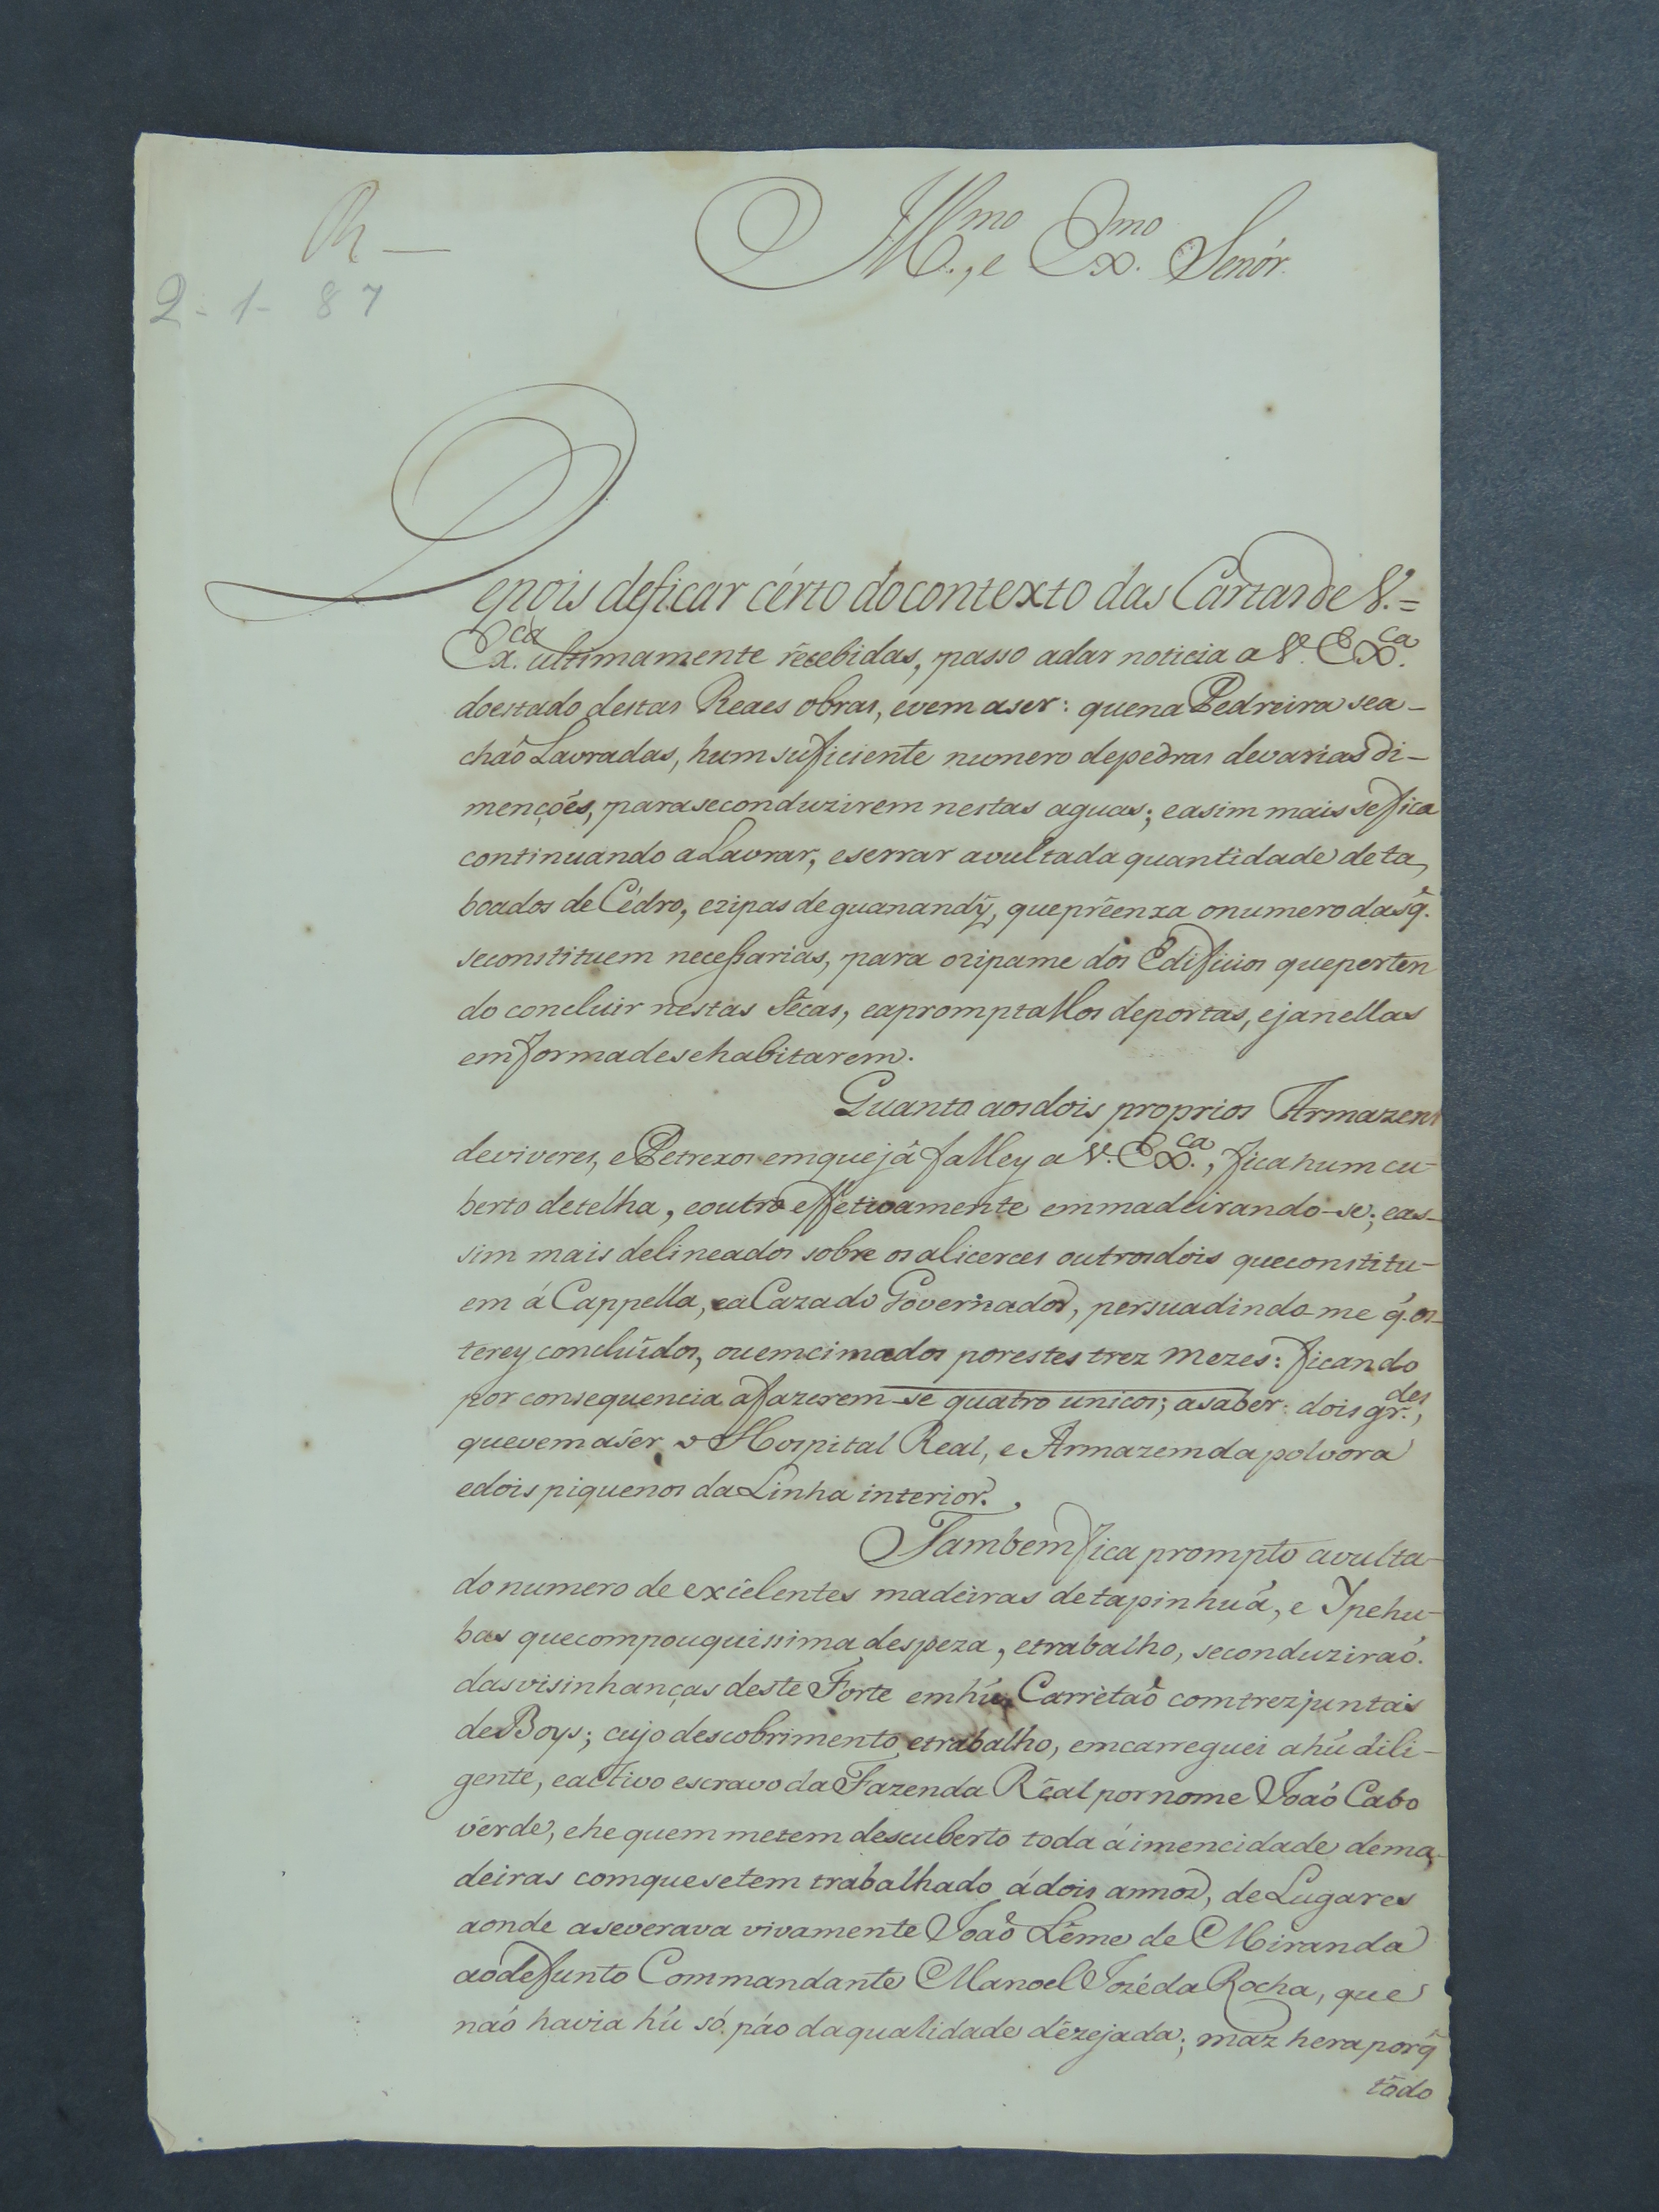 R.
2 - 1 - 87
Ill.mo, e Ex.mo Senór.
Depois deficar cérto docontexto das Cartas de V.=
Ex.ca ultimamente recebidas, passo adar noticia a V. Ex.ca
doestado destas Reaes obras, evem aser: quena Pedreira sea-
chaõ Lavradas, hum suficiente numero depedras devarias di-
menções, paraseconduzirem nestas aguas; easim mais sefica
continuando aLavrar, eserrar avultada quantidade de ta,
boados de Cédro, eripas de guanandy, quepréenxa onumero dasq̃.
seconstituem necessarias, para oripame dos Edificios queperten
do concluir nestas Sécas, eapromptallos deportas, ejanellas
emformadesehabitarem.
Quanto aosdois proprios Armazens
deviveres, ePetrexos emque já falley a V. Ex.ca, fica hum cu-
berto detelha, eoutro effetivamente emmadeirando-se; eas-
sim mais delineados sobre os alicerces outrosdois queconstitu-
em á Cappella, ea Caza do Governador, persuadindo-me q̃. os-
terey concluídos, ouemcimados porestes trez mezes: ficando
por consequencia afazerem-se quatro unicos; asaber: dois gr.des,
quevemasér o Hospital Real, e Armazem da polvora
edois piquenos da Linha interior.
Tambem fica prompto avulta-
do numero de excelentes madeiras detapinhuá, e Ypehu-
bas quecompouquissima despeza, etrabalho, seconduziraó.
dasvisinhanças deste Forte emhũ Carretaõ comtrezjuntas
de Boys; cujo descobrimento etrabalho, emcarreguei ahũ dili-
gente, eactivo escravo da Fazenda Réal pornome Joaó Cabo
vérde, ehe quem metem descuberto toda á imencidade dema,
deiras comquesetem trabalhado ádois annos, de Lugares
aonde aseverava vivamente Joaõ Léme de Miranda
aodefunto Commandante Manoel Jozé da Rocha, que
naó havia hũ só páo daqualidade dézejada; maz hera porq̃
tòdo